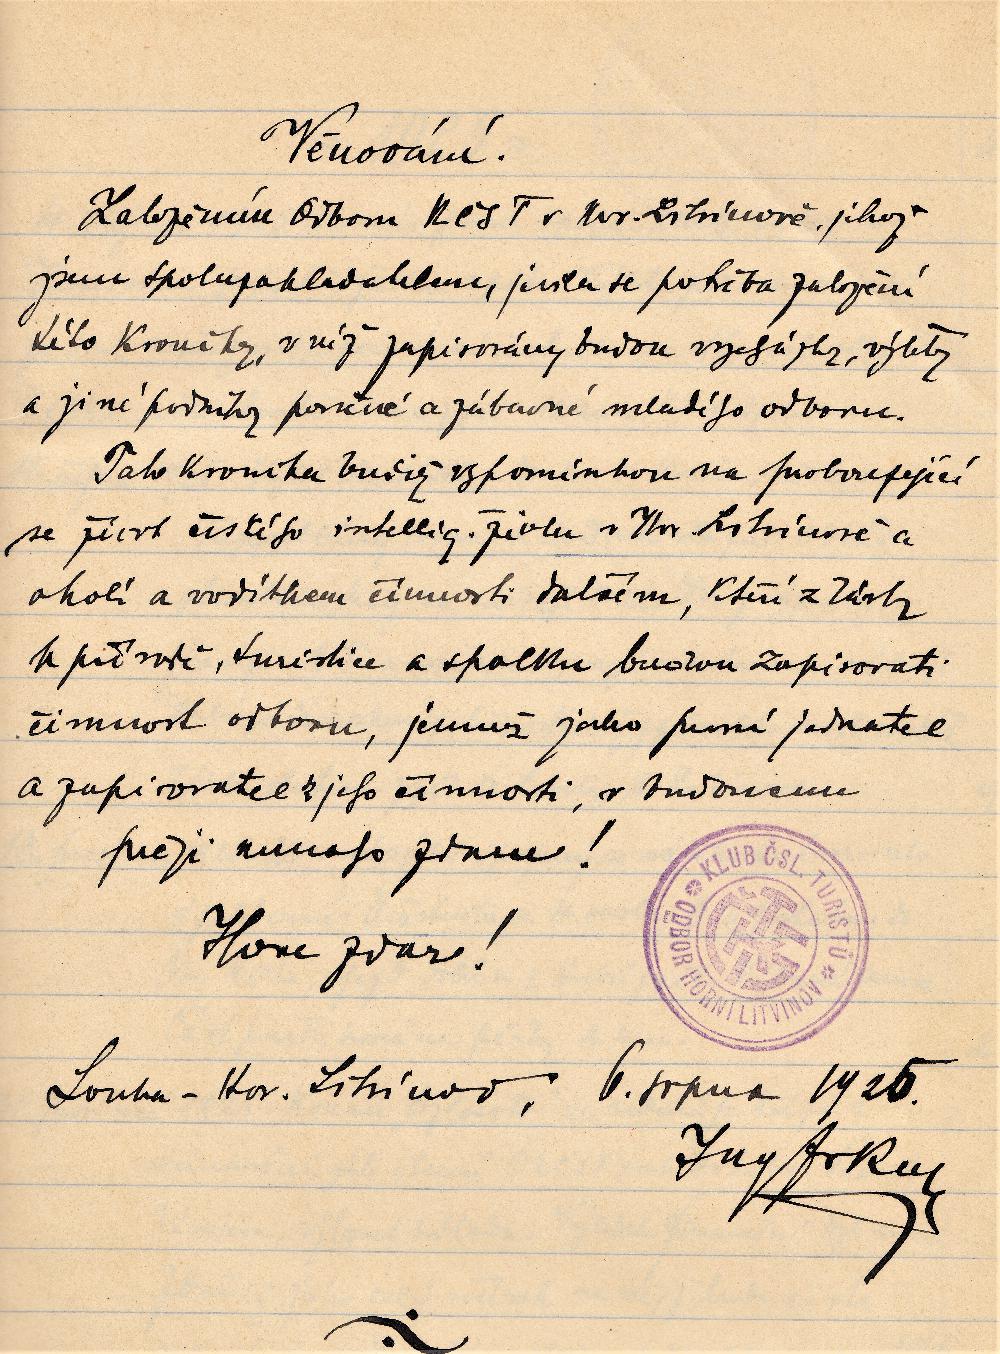 Věnování.
Založením Odboru KČST v Hor. Litvínově, jehož
jsem spoluzakladatelem, jevila se potřeba založení
této Kroniky, v níž zapisovány budou vycházky, výlety
a jiné podniky poučné a zábavné mladého odboru.
Tato Kronika budiž vzpomínkou na probouzející
se život českého intellig. živlu v Hor. Litvínově a
okolí a vodítkem činnosti dalším, kteří z lásky
k přírodě, turistice a spolku budou zapisovati
činnost odboru, jemuž jako první jednatel
a zapisovatel z jeho činnosti, v budoucnu
přeji mnoho zdaru!
Hore zdar!
KLUB ČSL. TURISTŮ
ODBOR HORNÍ LITVÍNOV
KČST
Louka - Hor. Litvínov, 6. srpna 1925.
Ing